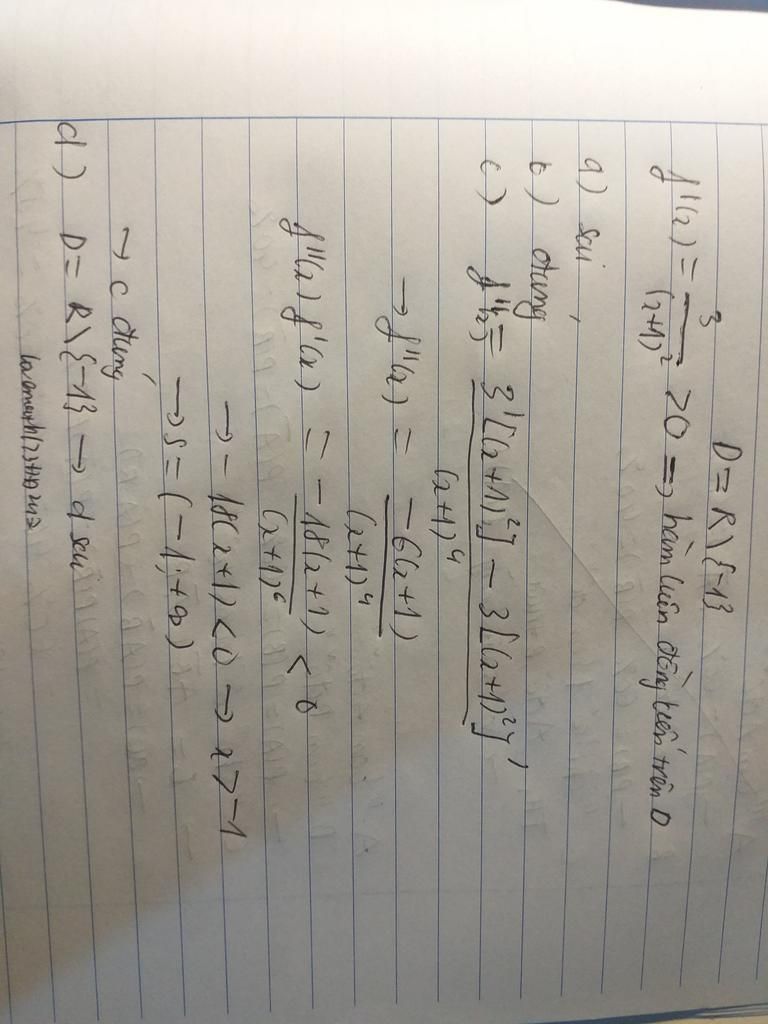 D = R \ {-1}
f'(x) = 3/(x+1)² > 0 => hàm luôn đồng biến trên D
a) sai
b) đúng
c) f''(x) = (3'[(x+1)²] - 3[(x+1)²]')/(x+1)⁴
→ f''(x) = -6(x+1)/(x+1)⁴
f''(x) f'(x) = -18(x+1)/(x+1)⁶ < 0
→ -18(x+1) < 0 → x > -1
→ S = (-1; +∞)
→ c đúng
d) D = R \ {-1} → d sai